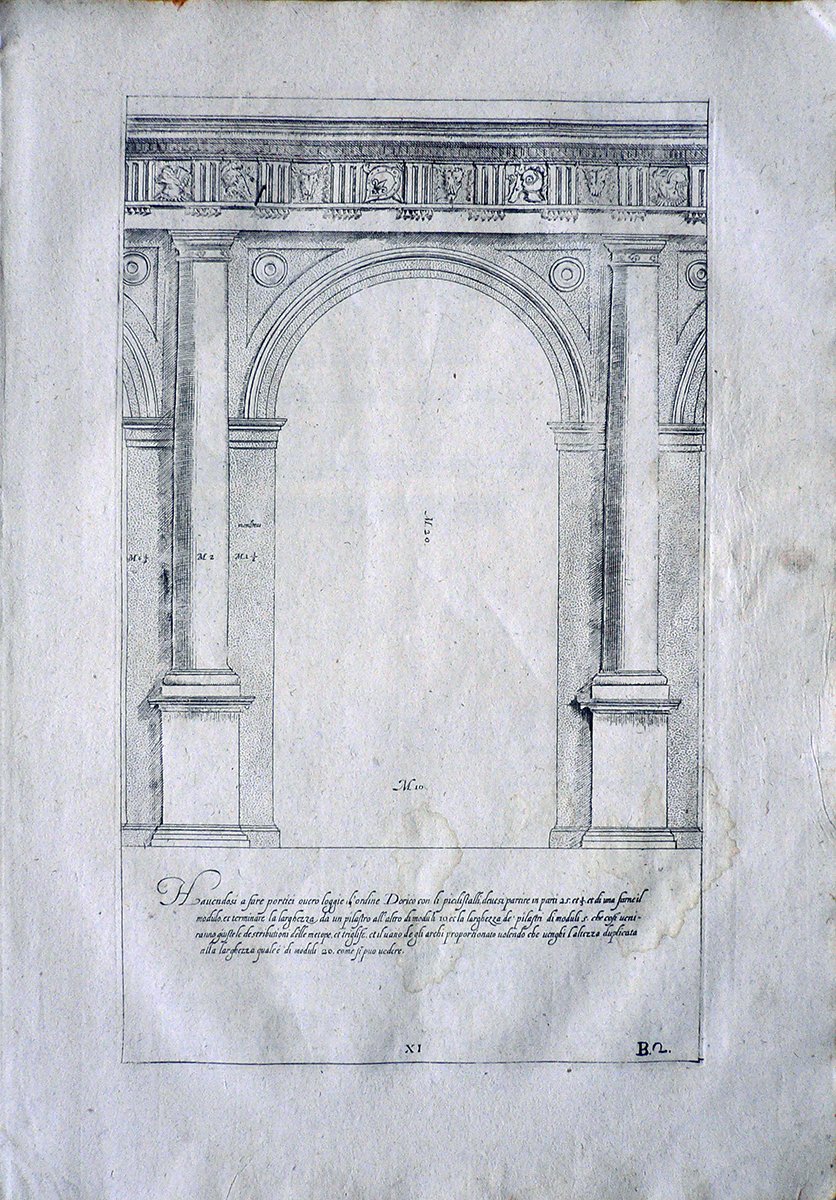 moduloː
M 1 ½
M 2
M 1 ½
M 20
M 10
Havendosi a fare portici overo loggie d'ordine Dorico con li piedistalli, devesi partire in parti 25. et ⅓. et di una farne il
modulo, et terminare la larghezza, da un pilastro all'altro di moduli 10 et la larghezza de' pilastri di moduli 5. che cosi veni=
ranno giuste le destributioni delle metope, et triglifi, et il vano de gli archi proportionato volendo che venghi l'altezza duplicata
alla larghezza qual'è di moduli 20. come si può vedere.
XI
B.2.